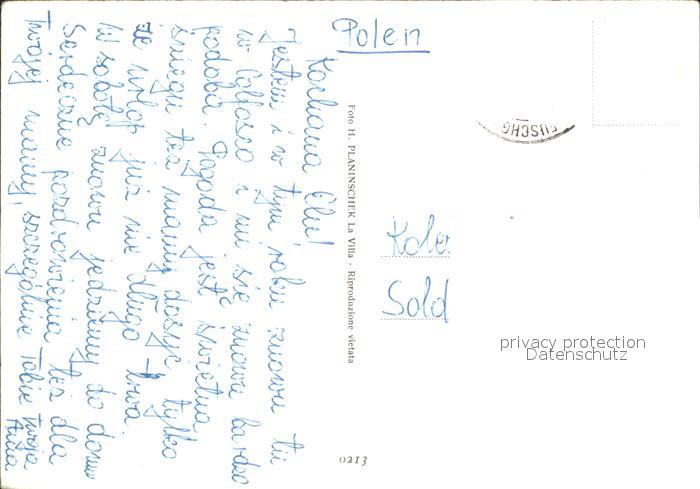 Polen
Kochana Elu!
Jestem i w tym roku znowu tu
w Colfosco i mi się znowu bardzo
podoba. Pogoda jest świetna,
śniegu też mamy dosyć tylko
że urlop już nie długo trwa.
W sobotę znowu jedziemy do domu
Serdeczne pozdrowienia też dla
Twojej mamy, szczególnie Tobie Twoja
Anna
Foto H. PLANINSCHEK La Villa - Riproduzione vietata
0213
Kole
Sold
privacy protection
Datenschutz